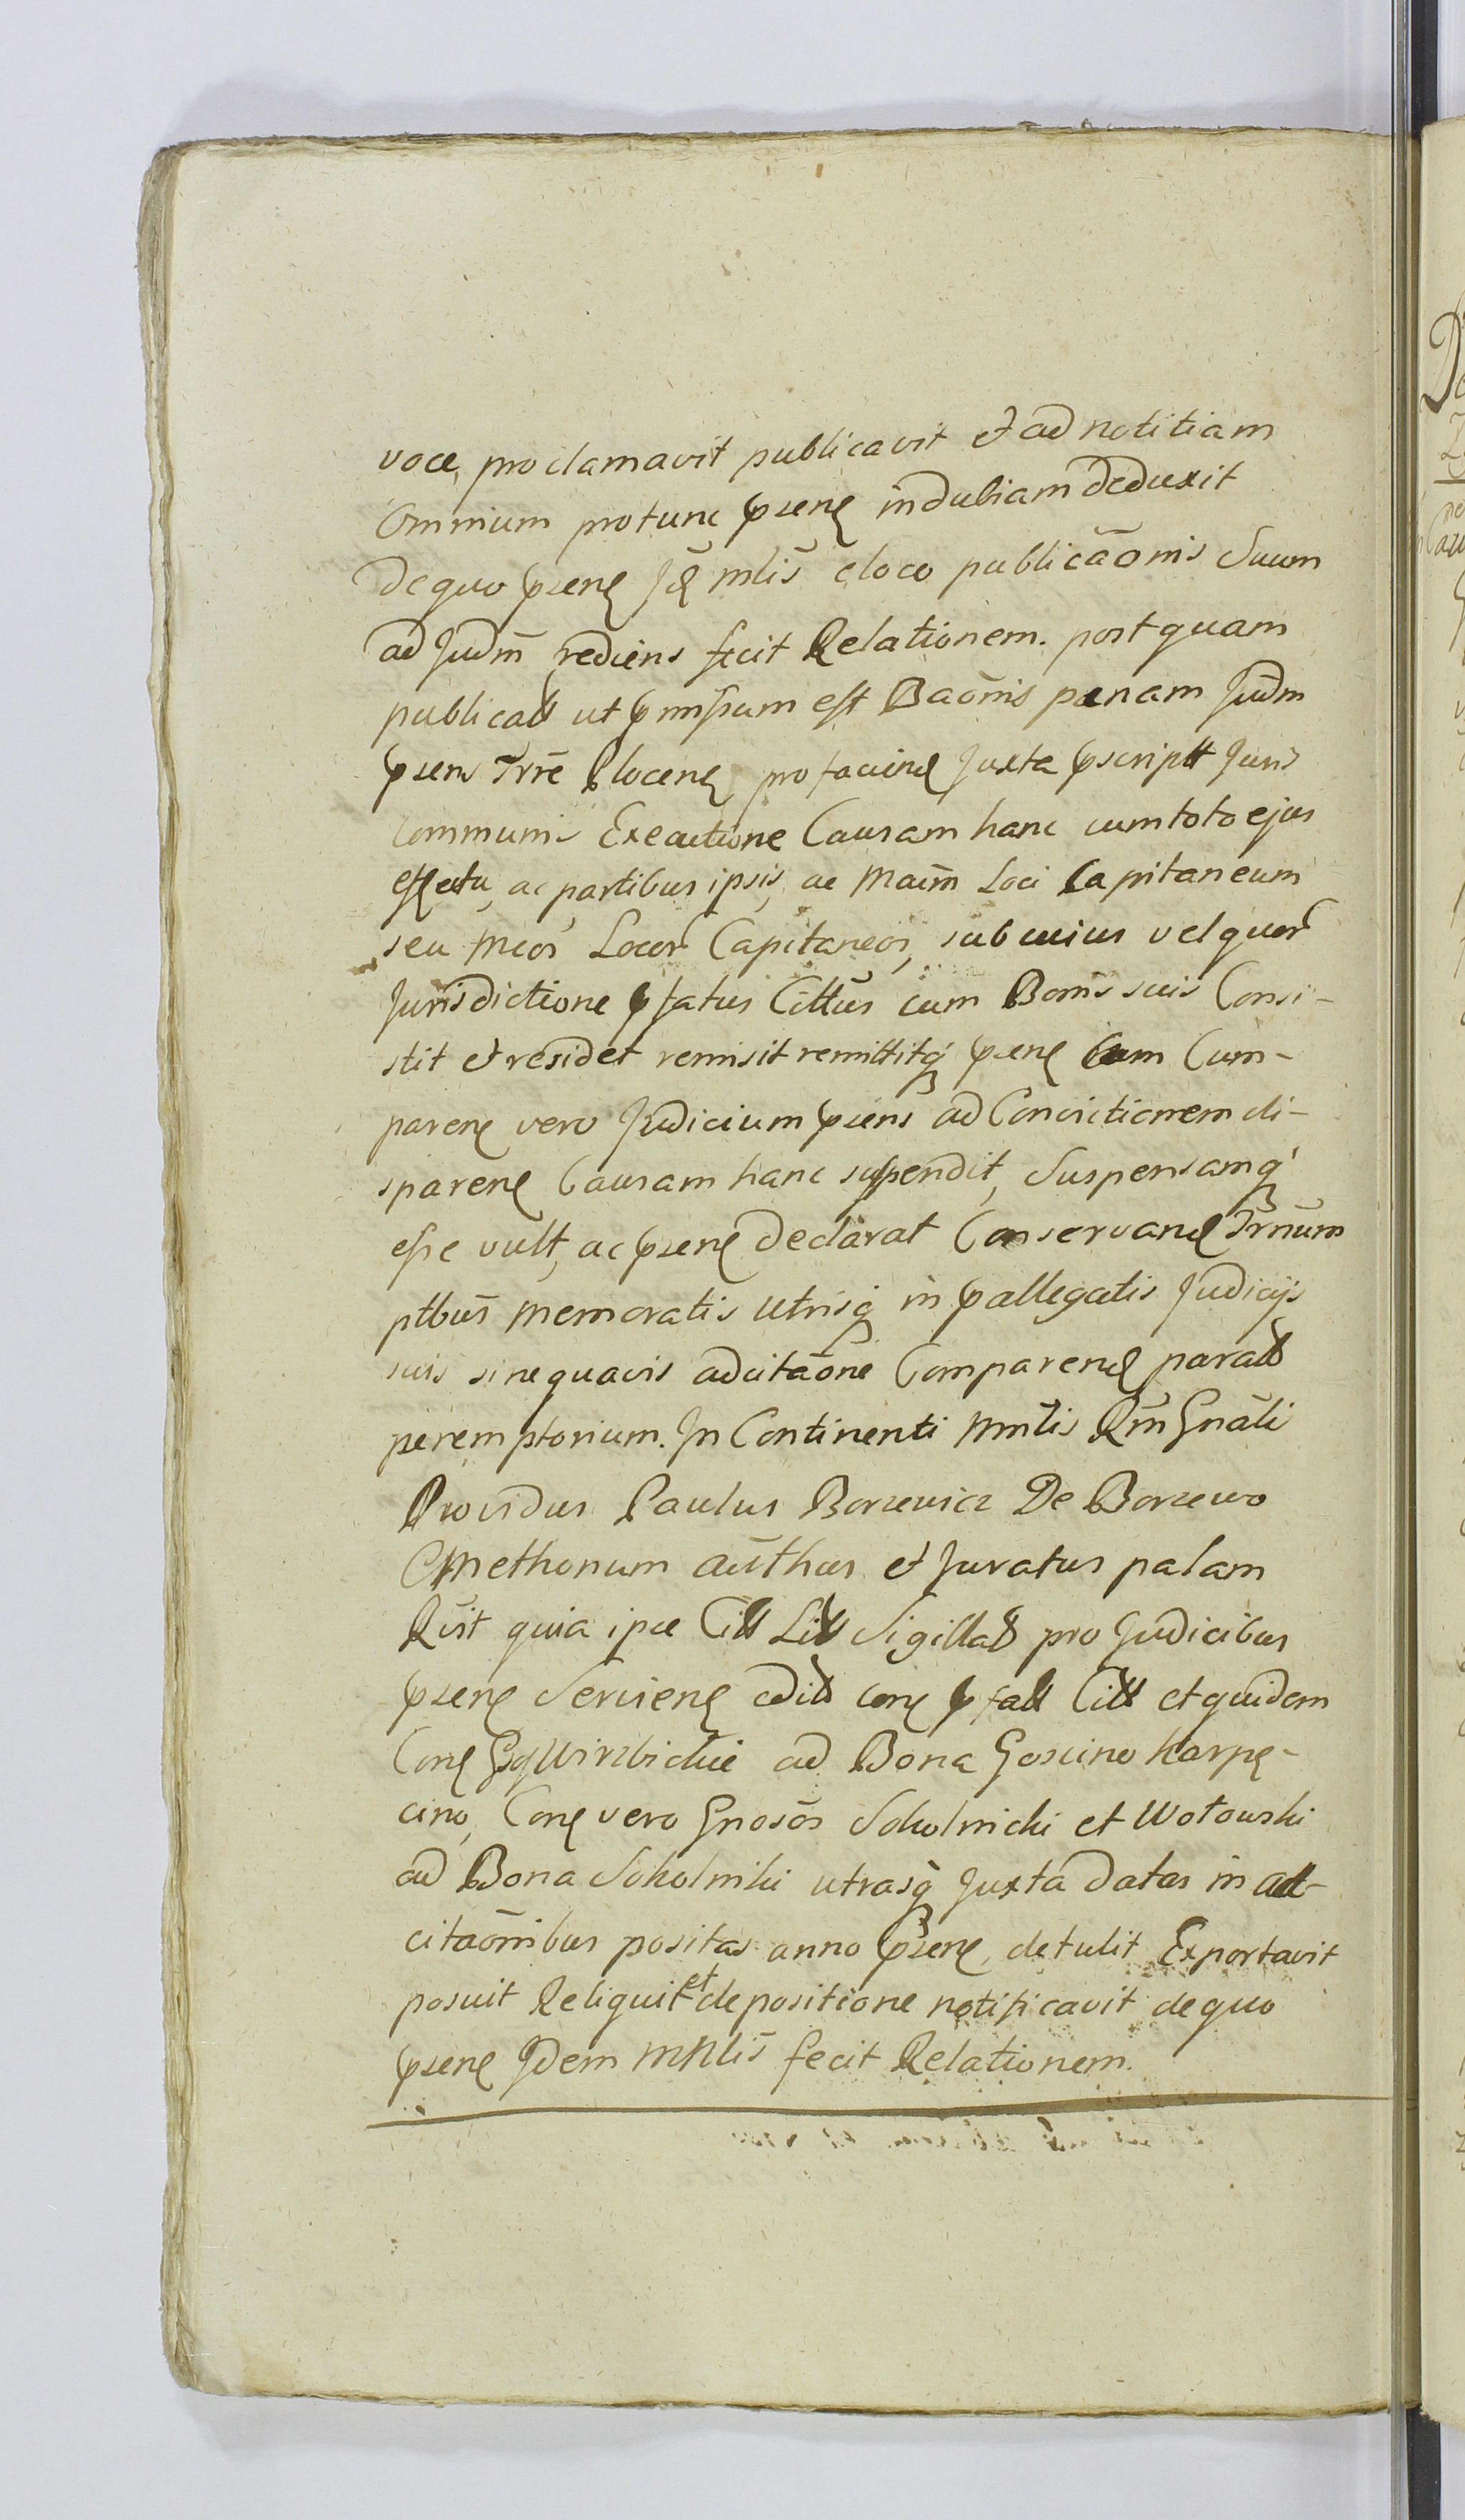 voce, proclamavit publicavit et ad notitiam
Omnium pro tunc pnsen indubiam deduxit
de quo pnsen Jd mlis e loco publicaonis Suum
ad Judm rediens fecit Relationem. post quam
publicat ut pmissum est Baonis panam Judm
psens Trre Plocen pro faciend Juxta pscript Juris
communis Executione Causam hanc cum toto ejus
effectu, ac partibus ipsis, ac Macm Loci Capitaneum
seu Mcos Locor Capitaneos, sub cuius vel quor
Jurisdictione pfatus Cittus cum Bonis suis Consi-
stit et residet remisit remittitq psen Cum Com-
paren vero Judicium psens ad Convictionem di-
sparen Causam hanc suspendit, Suspensamq
esse vult, ac psen declarat Conservand Trnum
ptbus memoratis utrisq in pallegatis Judicijs
suis sine quavis adcitaone Comparend parat
peremptorium. In Continenti Mnlis Rm Gnali
Providus Paulus Borzevicz De Borzewo
Cmethonum authus et Juratus palam
Rvit quia ipse Citt Litt Sigillat pro Judicibus
psen Servien edit con pfatt Citt et quidem
Con Gsq Wirzbickie ad Bona Goscino Karpę-
cino, Con vero Gnosos Sokolnicki et Wotowski
ad Bona Sokolniki utrasq Juxta datas in ad-
citaonibus positas anno psen, detulit Exportavit
posuit Reliquit et depositione notificavit de quo
psen Idem Mnlis fecit Relationem.